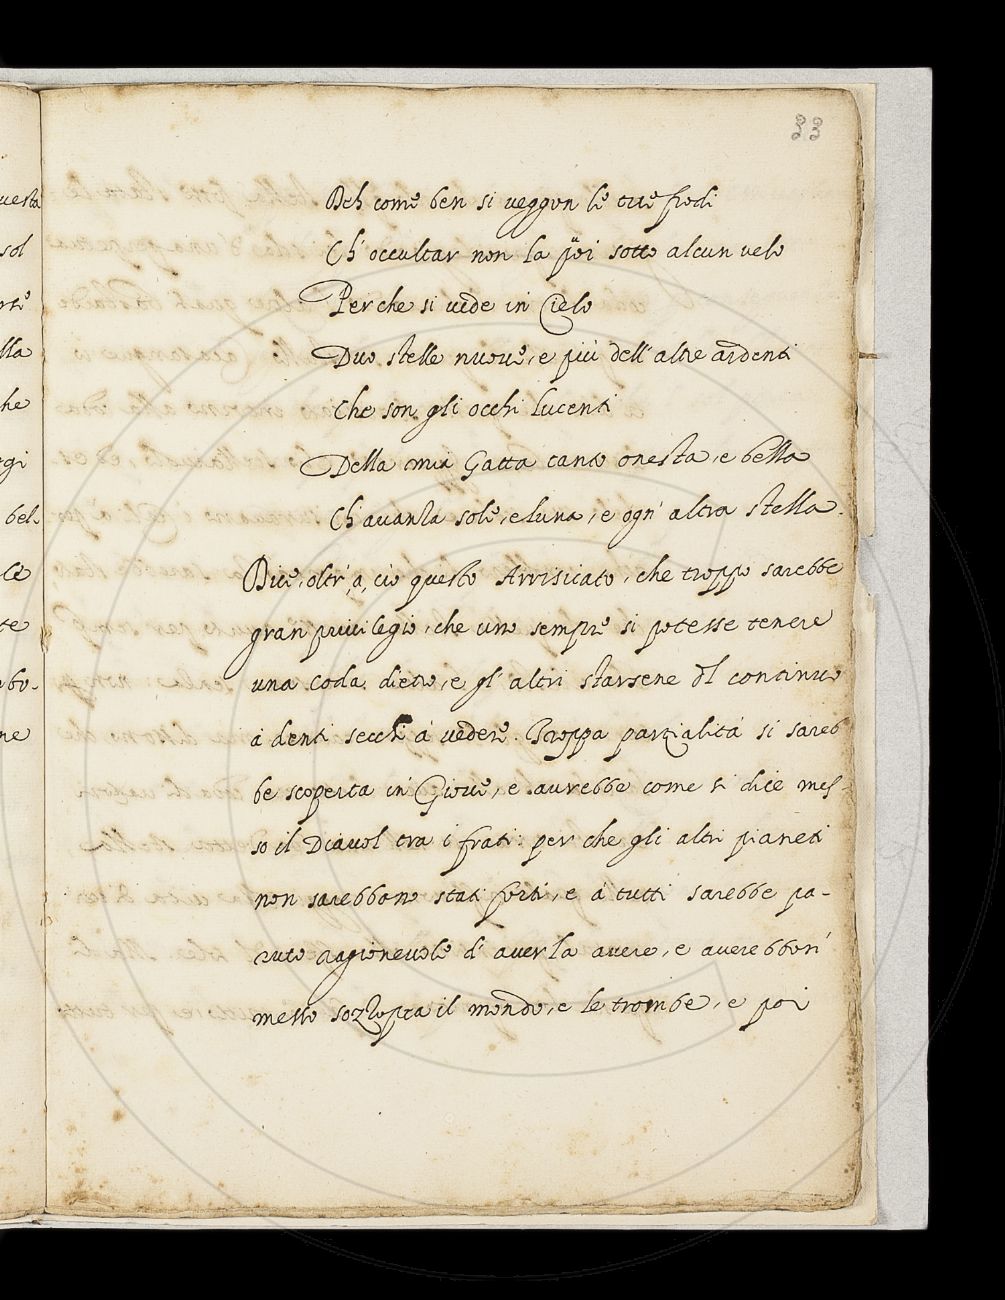 33
Deh come ben si veggon le tue frodi
Ch' occultar non la puoi sotto alcun velo
Perche si vede in Cielo
Due stelle nuove, e più dell' altre ardenti
Che son gli occhi lucenti
Della mia Gatta tanto onesta, e bella
Ch' avanza sole, e luna, e ogn' altra stella.
Dice, oltr' a, ciò questo Arrisicato, che troppo sarebbe
gran privilegio, che uno sempre si potesse tenere
una coda dietro, e gl' altri starsene del continuo
à denti secchi à vedere. Troppa parzialità si sareb
be scoperta in Giove, e aurebbe come si dice mes-
so il Diavol tra i frati: per che gli altri pianeti
non sarebbono stati forti, e à tutti sarebbe pa-
ruto ragionevole d' averla avere, e averebbon'
messo sozzopra il mondo, e le trombe, e poi
uesta
sol
lla
he
gi
bel-
te
bo-
ne